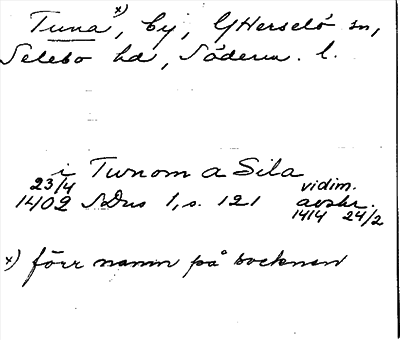 Tuna x), by, Ytterselö sn,
Selebo hd, Söderm. l.
i Tunom a Sila
23/4 1402 SDns 1, s. 121 vidim. avskr. 1414 24/2
x) förr namn på socknen